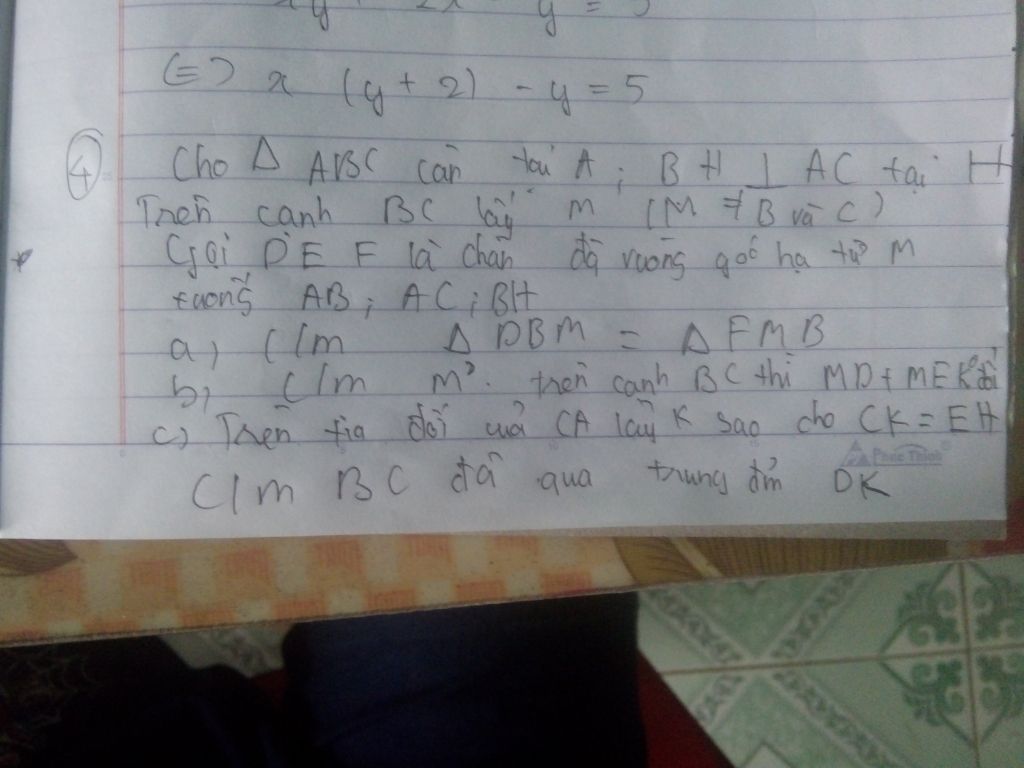 (=) x (y + 2) - y = 5
④ Cho Δ ABC cân tại A ; BH ⊥ AC tại H
Trên cạnh BC lấy M (M ≠ B và C)
Gọi D E F là chân đg vuông góc hạ từ M
xuống AB ; AC ; BH
a, C/m Δ DBM = Δ FMB
b, C/m M trên cạnh BC thì MD + ME K° đổi
c) Trên tia đối của CA lấy K sao cho CK = EH
Phúc Thịnh
C/m BC đi qua trung đm DK